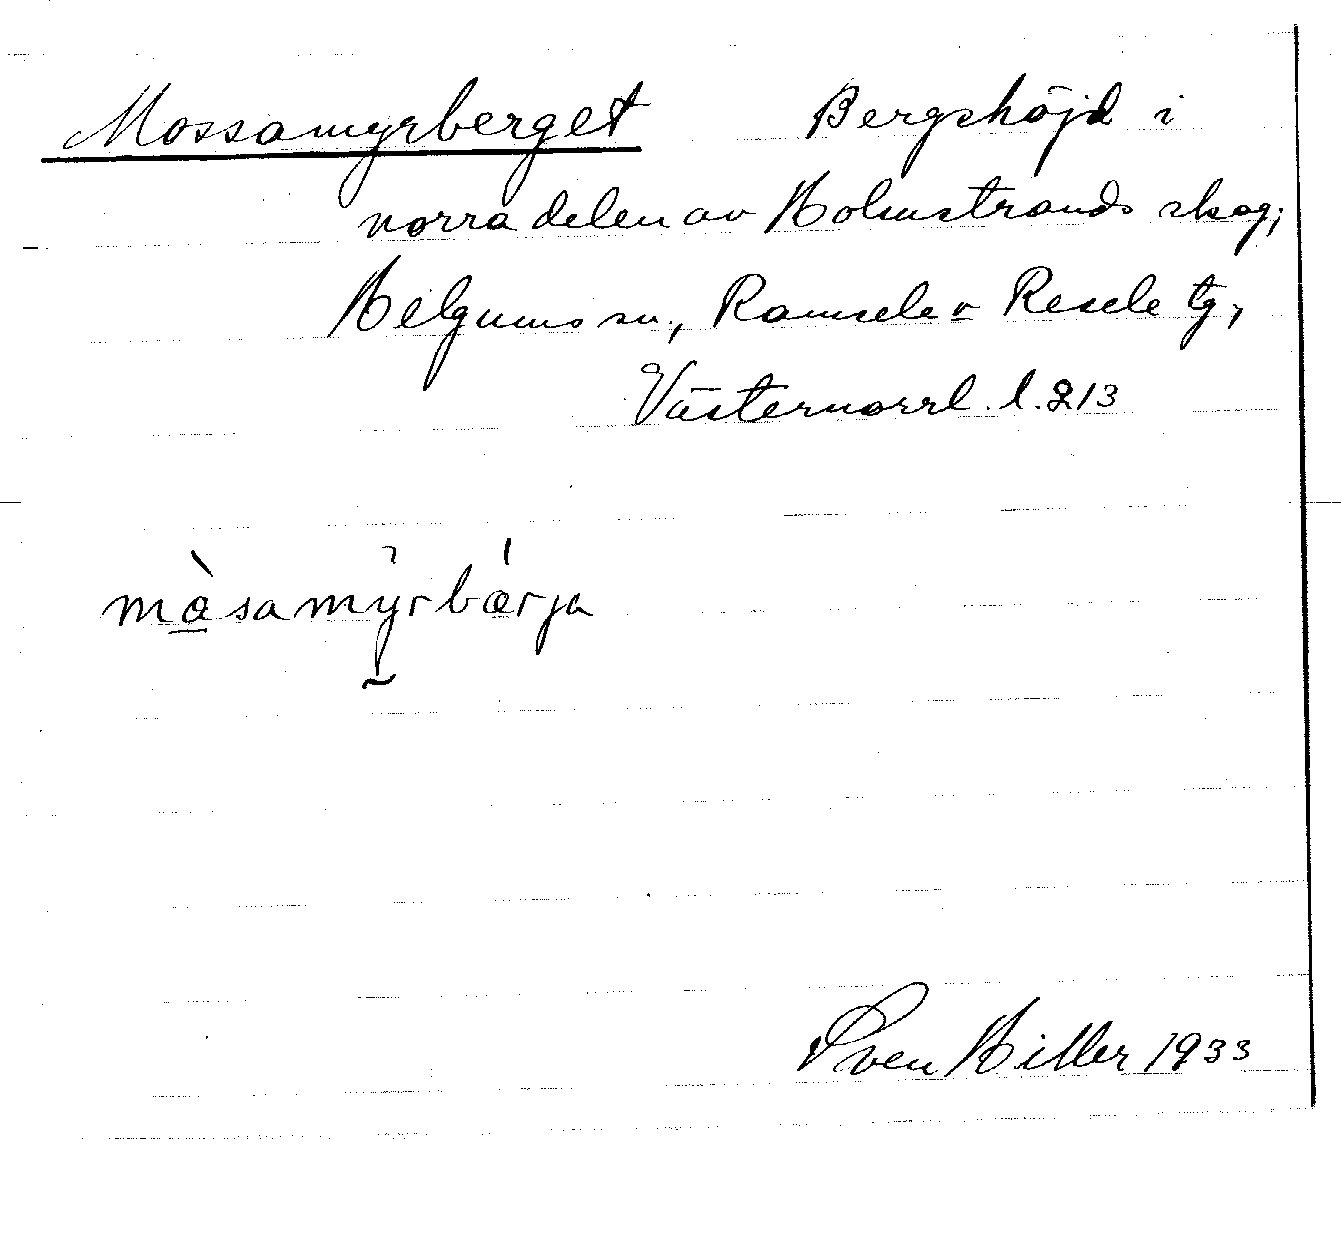 Mossamyrberget Bergshöjd i
norra delen av Holmstrands skog;
Helgums sn., Ramsele o Resele tg,
Västernorrl. l. 213
mòsamy̆rbǽrja
Sven Hiller 1933